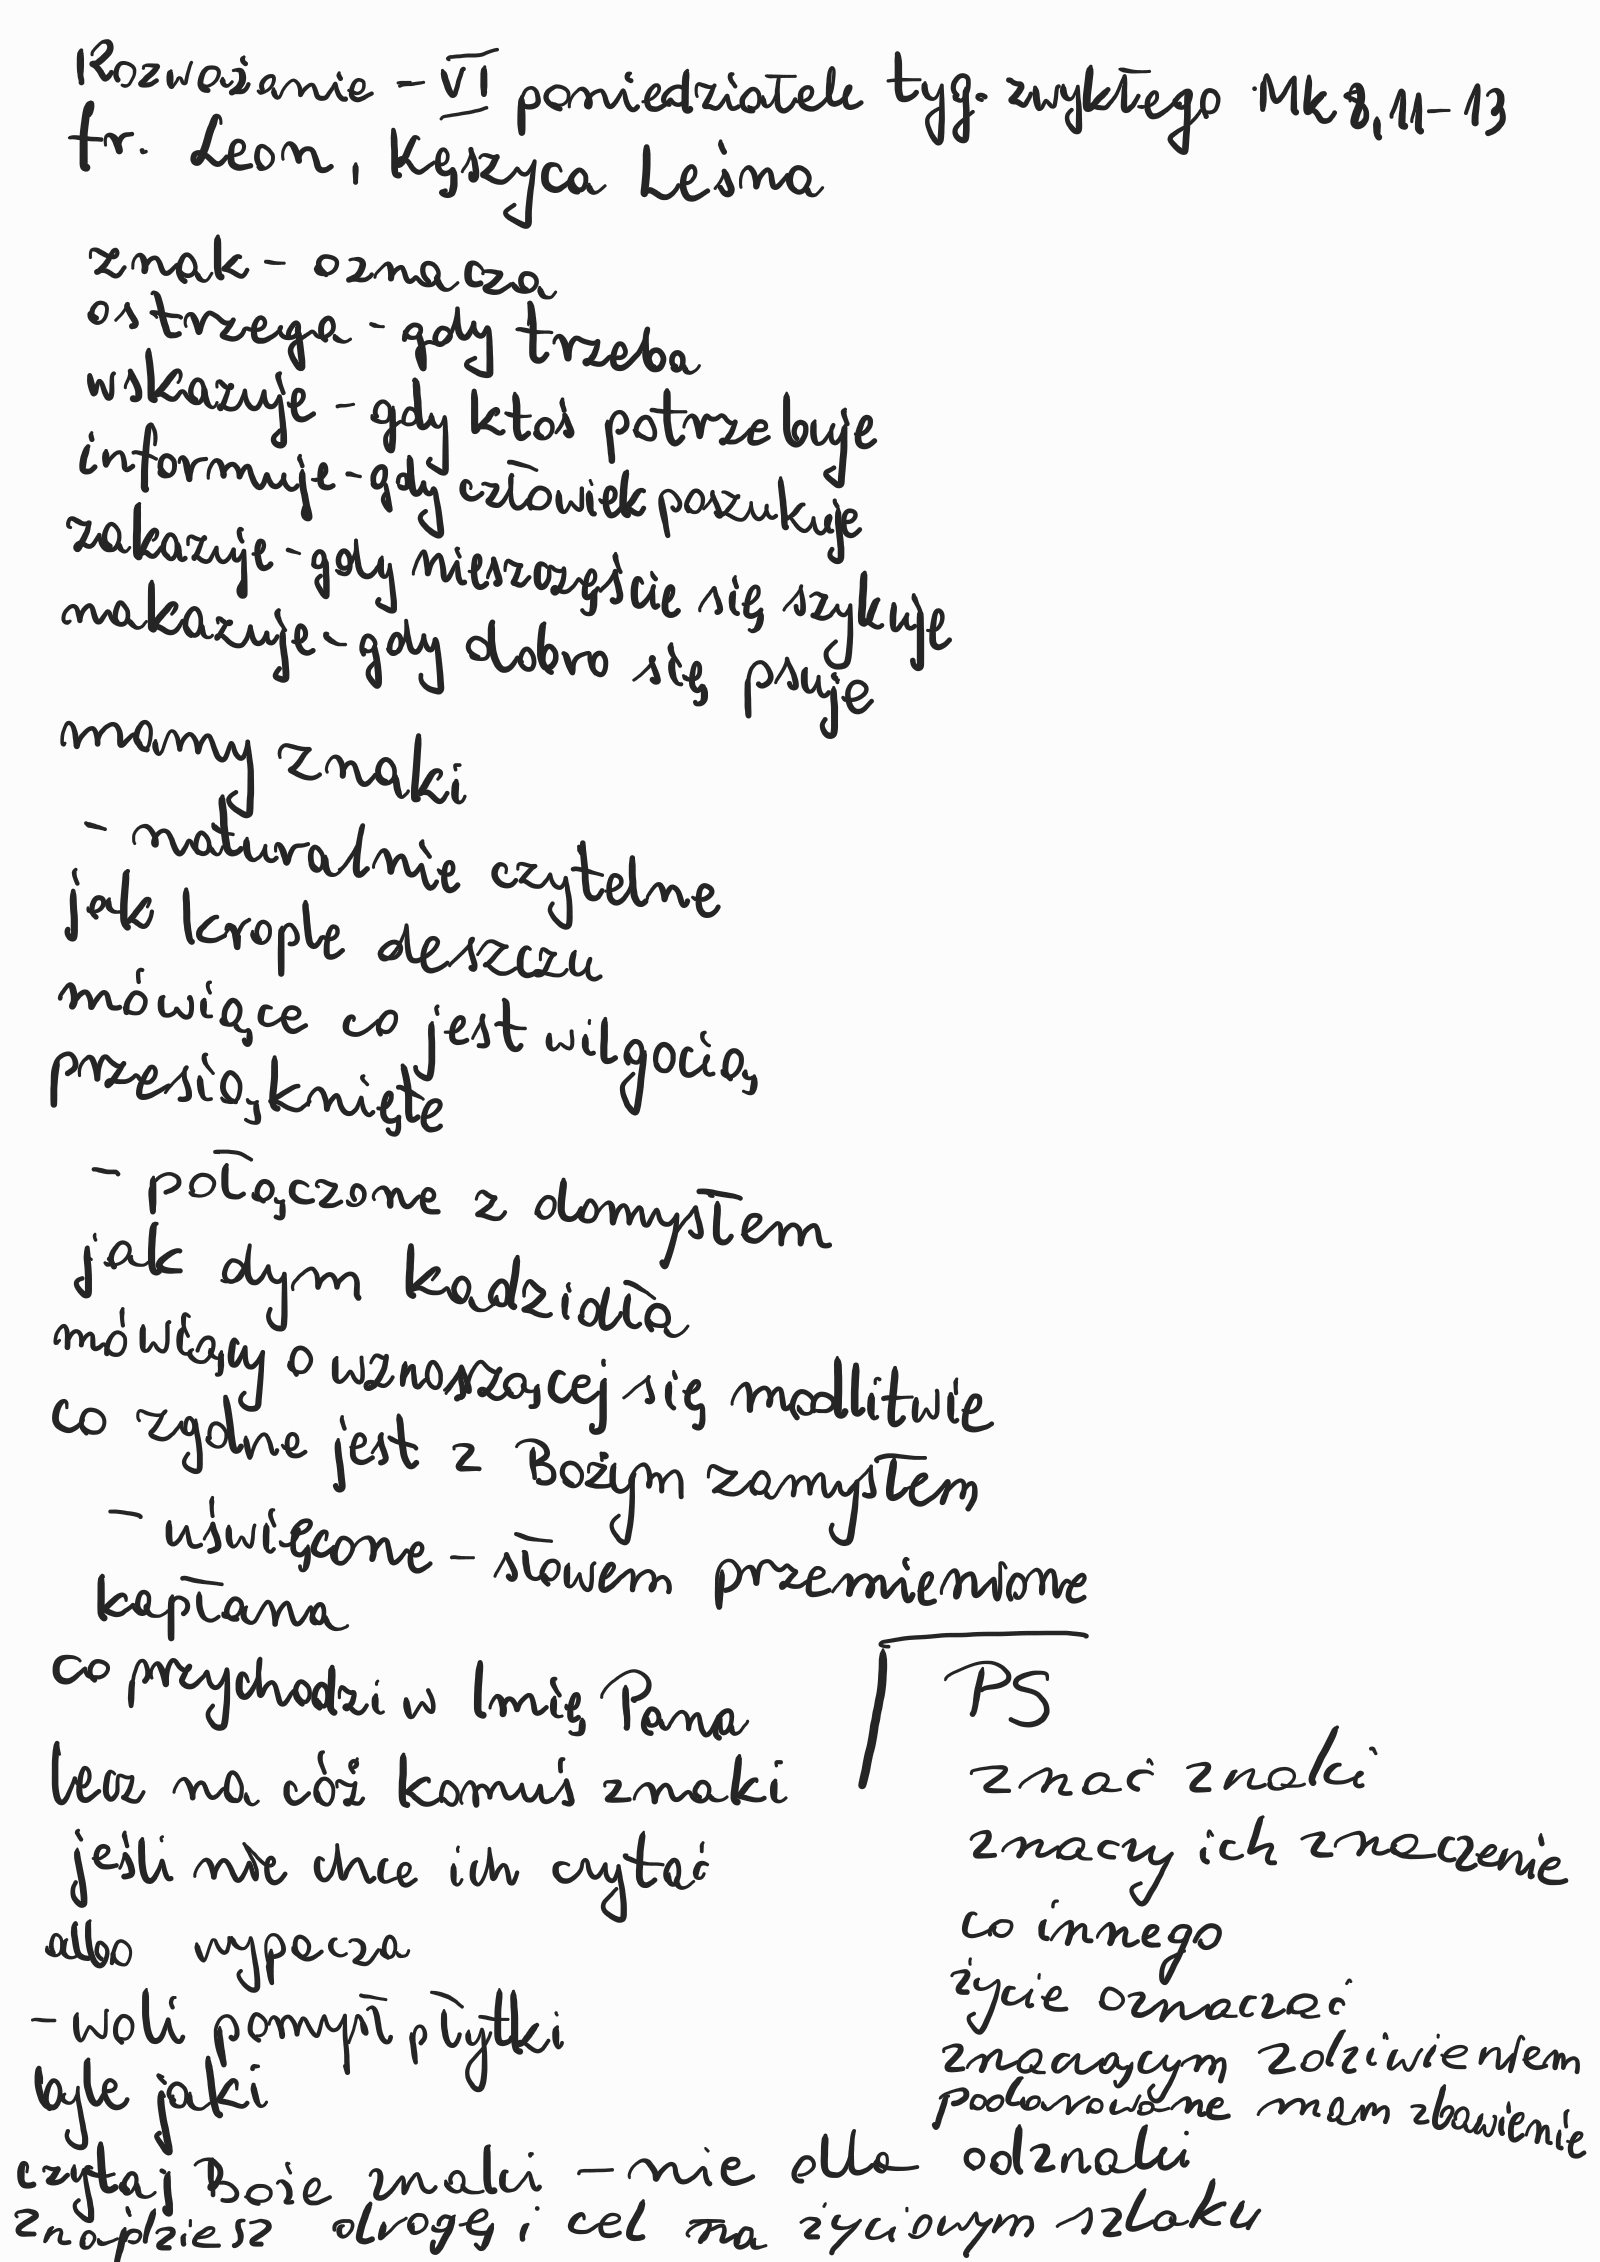 Rozważanie - VI poniedziałek tyg. zwykłego Mk 8,11-13
fr. Leon, Kęszyca Leśna
znak - oznacza
ostrzega - gdy trzeba
wskazuje - gdy ktoś potrzebuje
informuje - gdy człowiek poszukuje
zakazuje - gdy nieszczęście się szykuje
nakazuje - gdy dobro się psuje
mamy znaki
- naturalnie czytelne
jak krople deszczu
mówiące co jest wilgocią
przesiąknięte
- połączone z domysłem
jak dym kadzidła
mówiący o wznoszącej się modlitwie
co zgodne jest z Bożym zamysłem
- uświęcone - słowem przemienione
kapłana
co przychodzi w Imię Pana
lecz na cóż komuś znaki
jeśli nie chce ich czytać
albo wypacza
- woli pomysł płytki
byle jaki
PS
znać znaki
znaczy ich znaczenie
co innego
życie oznaczać
znaczącym zdziwieniem
podarowane nam zbawienie
czytaj Boże znaki - nie dla odznaki
znajdziesz drogę i cel na życiowym szlaku